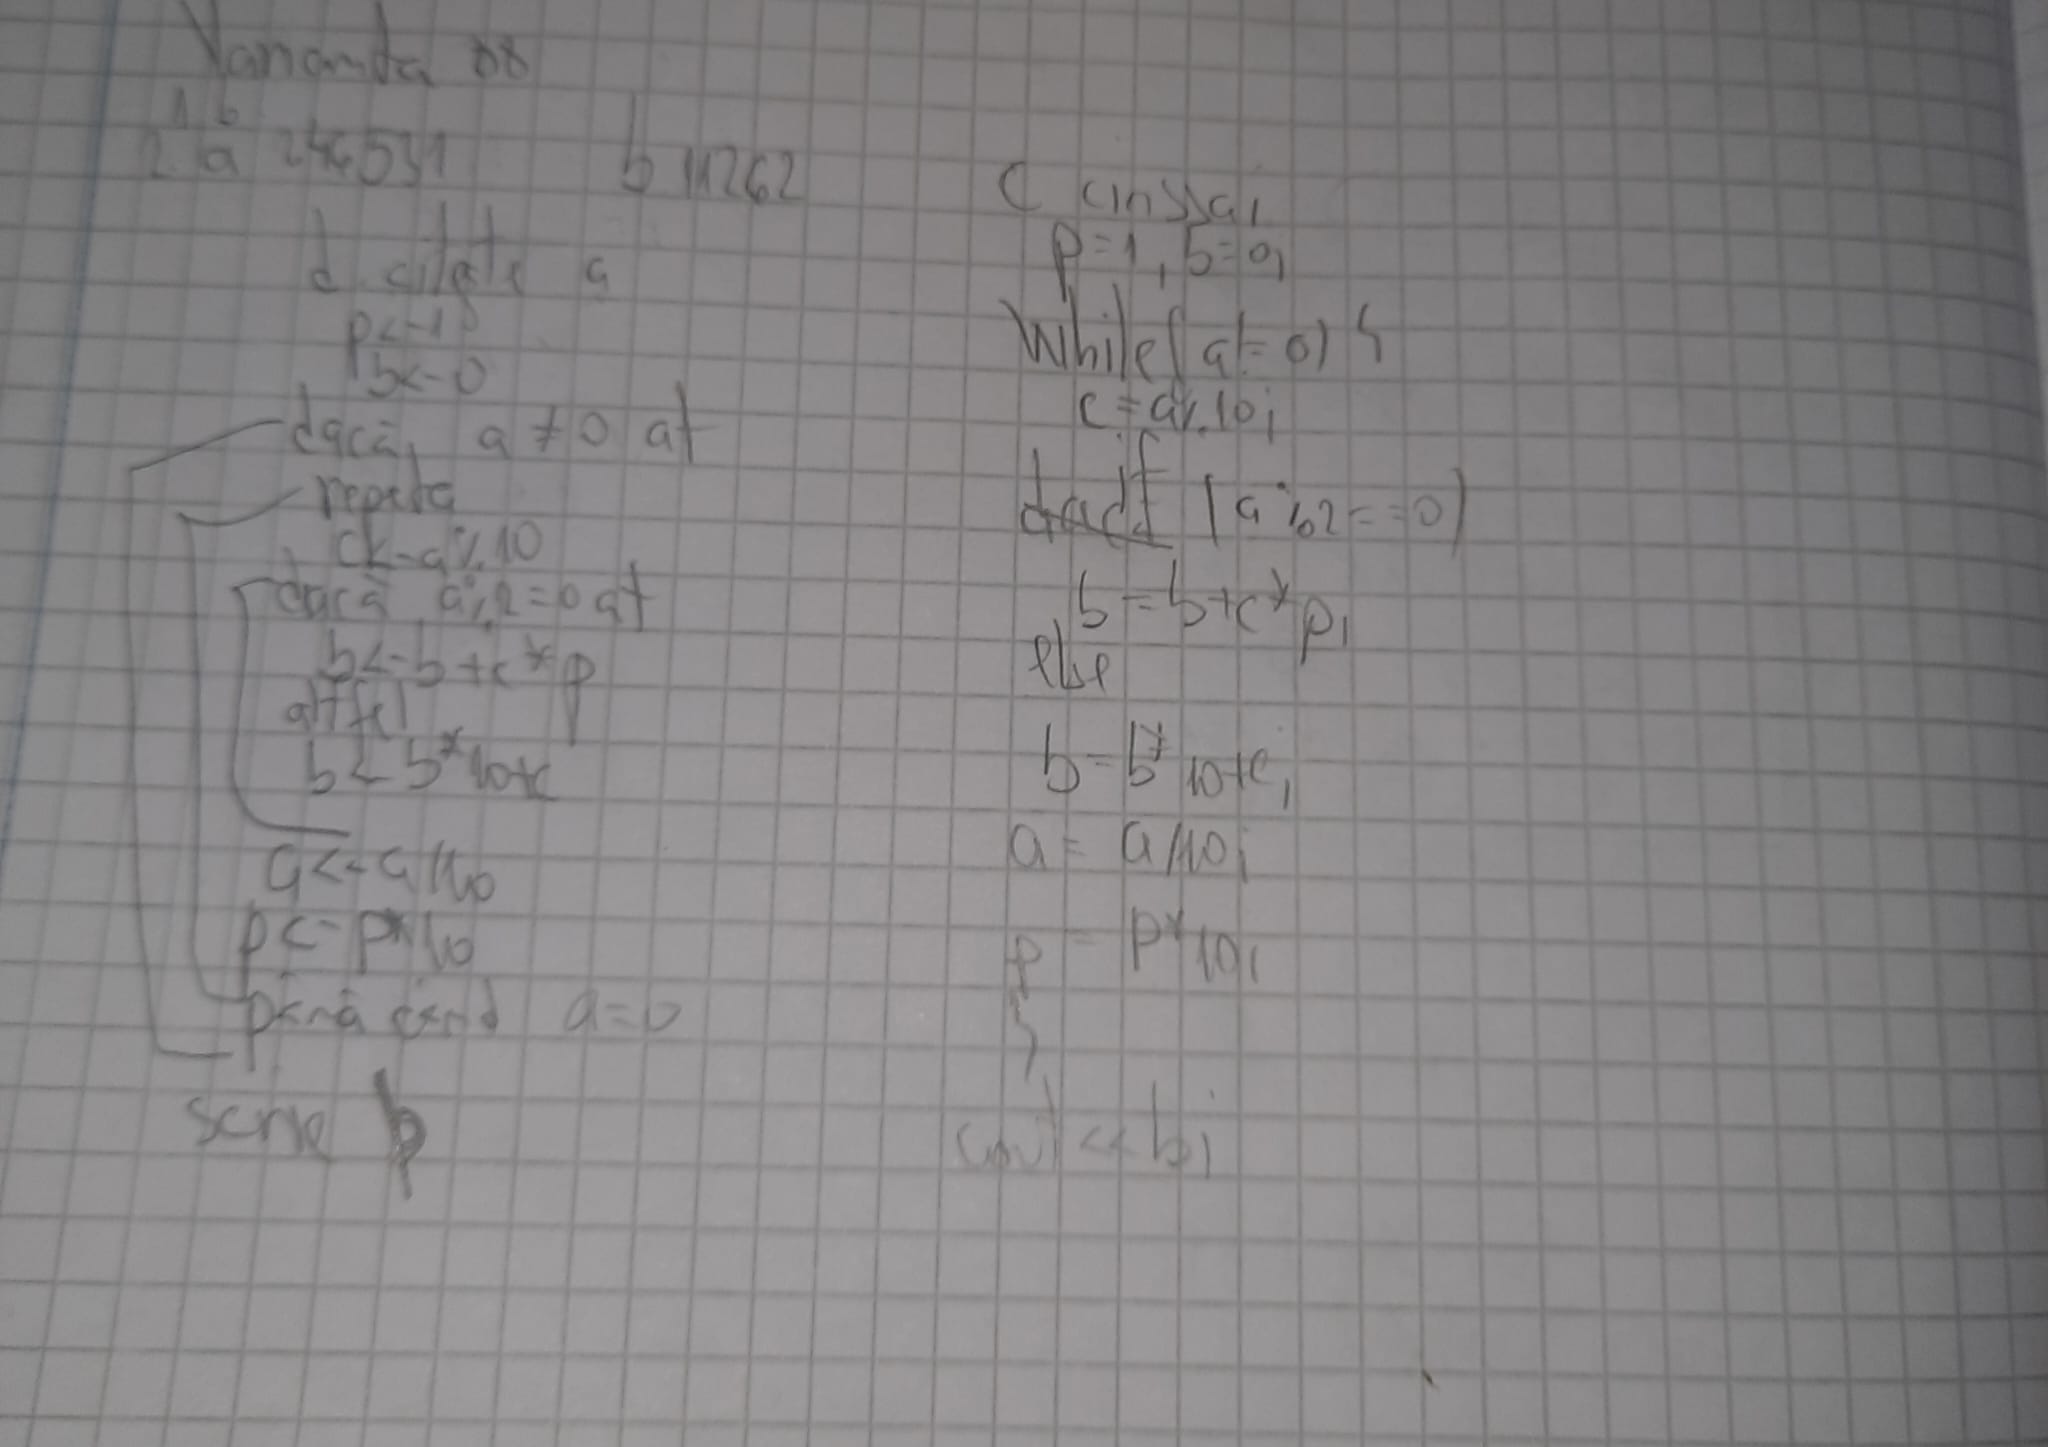 Varianta 08
1 b
2 a 246531 b 11262
d. citește a
p<-1
b<-0
dacă a≠0 at
repetă
c<-a%10
dacă a%2=0 at
b<-b+c*p
altfel
b<-b*10+c
a<-a/10
p<-p*10
până când a=0
scrie b
c cin>>a;
p=1, b=0;
While(a!=0){
c=a%10;
if (a%2==0)
b=b+c*p;
else
b=b*10+c;
a=a/10;
p=p*10;
}
cout<<b;